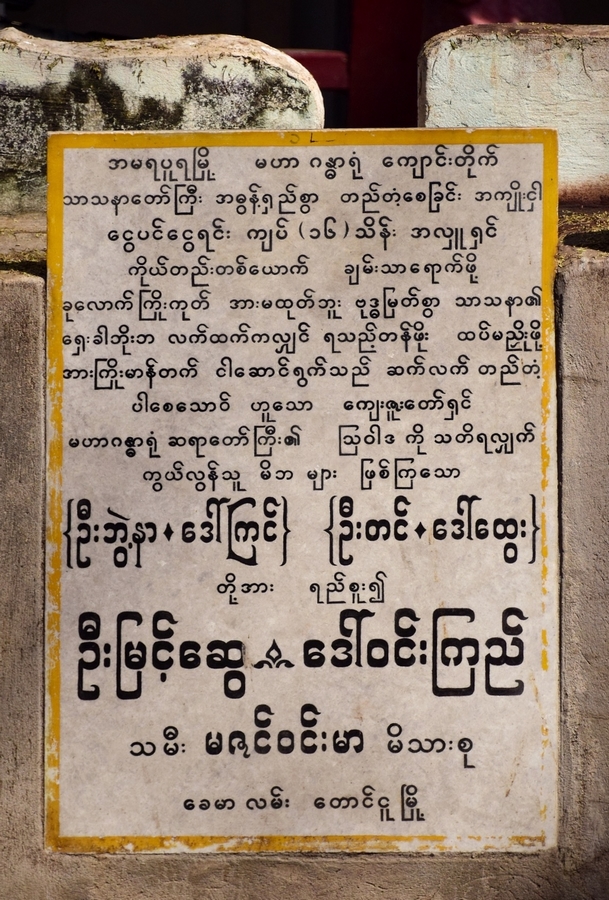 အမရပူရမြို့ မဟာ ဂန္ဓာရုံ ကျောင်းတိုက်
သာသနာတော်ကြီး အဓွန့်ရှည်စွာ တည်တံ့စေခြင်း အကျိုးငှါ
ငွေပင်ငွေရင်း ကျပ် (၁၆) သိန်း အလှူရှင်
ကိုယ်တည်းတစ်ယောက် ချမ်းသာရောက်ဖို့
ခုလောက်ကြိုးကုတ် အားမထုတ်ဘူး ဗုဒ္ဓမြတ်စွာ သာသနာ၏
ရှေးခါဘိုးဘ လက်ထက်ကလျှင် ရသည့်တန်ဖိုး ထပ်မညှိုးဖို့
အားကြိုးမာန်တက် ငါဆောင်ရွက်သည် ဆက်လက် တည်တံ့
ပါစေသောဝ် ဟူသော ကျေးဇူးတော်ရှင်
မဟာဂန္ဓာရုံ ဆရာတော်ကြီး၏ ဩဝါဒ ကို သတိရလျှက်
ကွယ်လွန်သူ မိဘ များ ဖြစ်ကြသော
{ဦးဘွဲ့နာ ♦ ဒေါ်ကြင်} {ဦးတင် ♦ ဒေါ်ထွေး}
တို့အား ရည်စူး၍
ဦးမြင့်ဆွေ ဒေါ်ဝင်းကြည်
သမီး မဇင်ဝင်းမာ မိသားစု
ခေမာ လမ်း တောင်ငူ မြို့